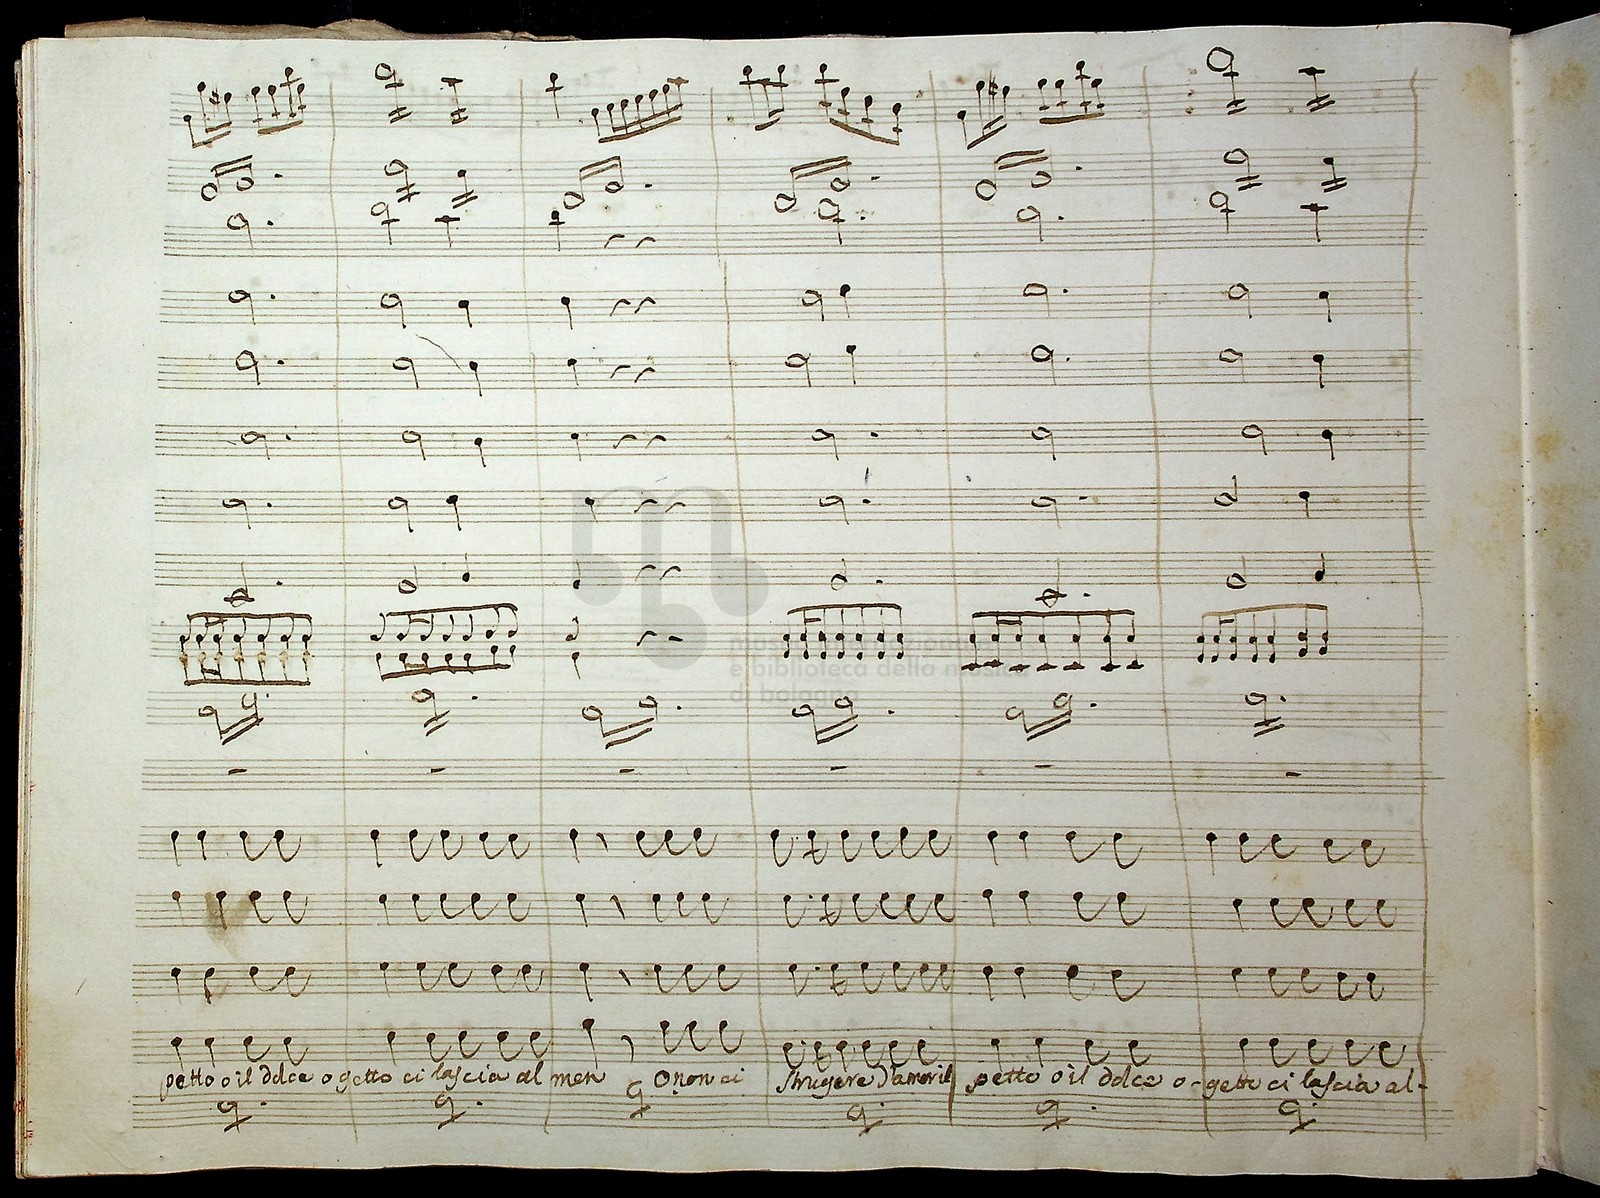 museo internazionale
e biblioteca della musica
di bologna
petto o il dolce o getto ci lascia al men O non ci strugere d'amor il petto o il dolce o-getto ci lascia al-